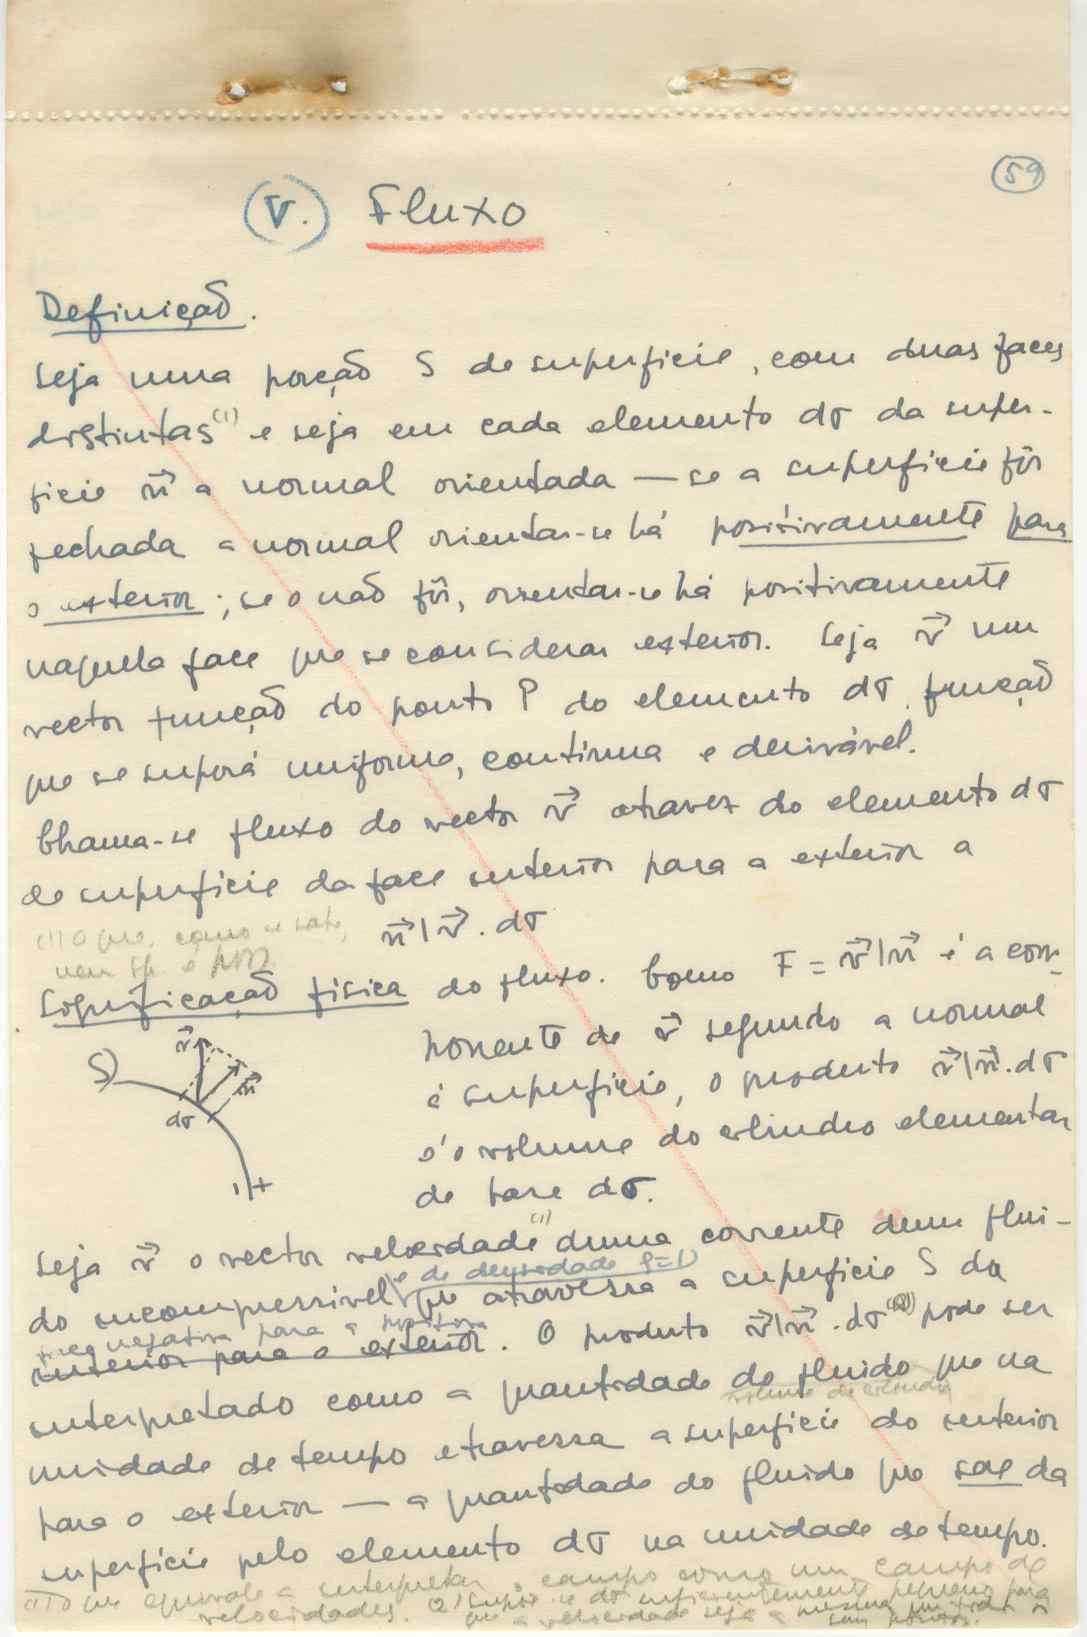 59
V. Fluxo
Definição.
Seja uma porção S de superficie, com duas faces
distintas (1) e seja em cada elemento dσ da super-
ficie n⃗ a normal orientada — se a superficie fôr
fechada a normal orientar-se há positivamente para
o exterior; se o não fôr, orientar-se há positivamente
naquela face que se considerar exterior. Seja v⃗ um
vector função do ponto P do elemento dσ, função
que se suporá uniforme, contínua e derivável.
Chama-se fluxo do vector v⃗ atravez do elemento dσ
de superficie da face interior para a exterior a
(1) O que, como se sabe,
n⃗ | v⃗ . dσ
nem sp. é poss.
Significação fisica do fluxo. Como F = v⃗ | n⃗ é a com-
ponente de v⃗ segundo a normal
à superficie, o produto v⃗ | n⃗ . dσ
é o volume do cilindro elementar
de base dσ.
S) v⃗ n⃗ dσ - +
Seja v⃗ o vector velocidade (1) duma corrente dum flui-
e de densidade ρ=1)
do incompressivel que atravessa a superficie S da
negativa para a positiva
interior para o exterior. O produto v⃗ | n⃗ . dσ (2) pode ser
interpretado como a quantidade de fluido que na
volume do cilindro
unidade de tempo atravessa a superficie do interior
para o exterior — a quantidade do fluido que sae da
superficie pelo elemento dσ na unidade de tempo.
(1) O que equivale a interpretar o campo como um campo de
velocidades. (2) Supõe-se dσ suficientemente pequeno para
que a velocidade seja a mesma em todos os
seus pontos.